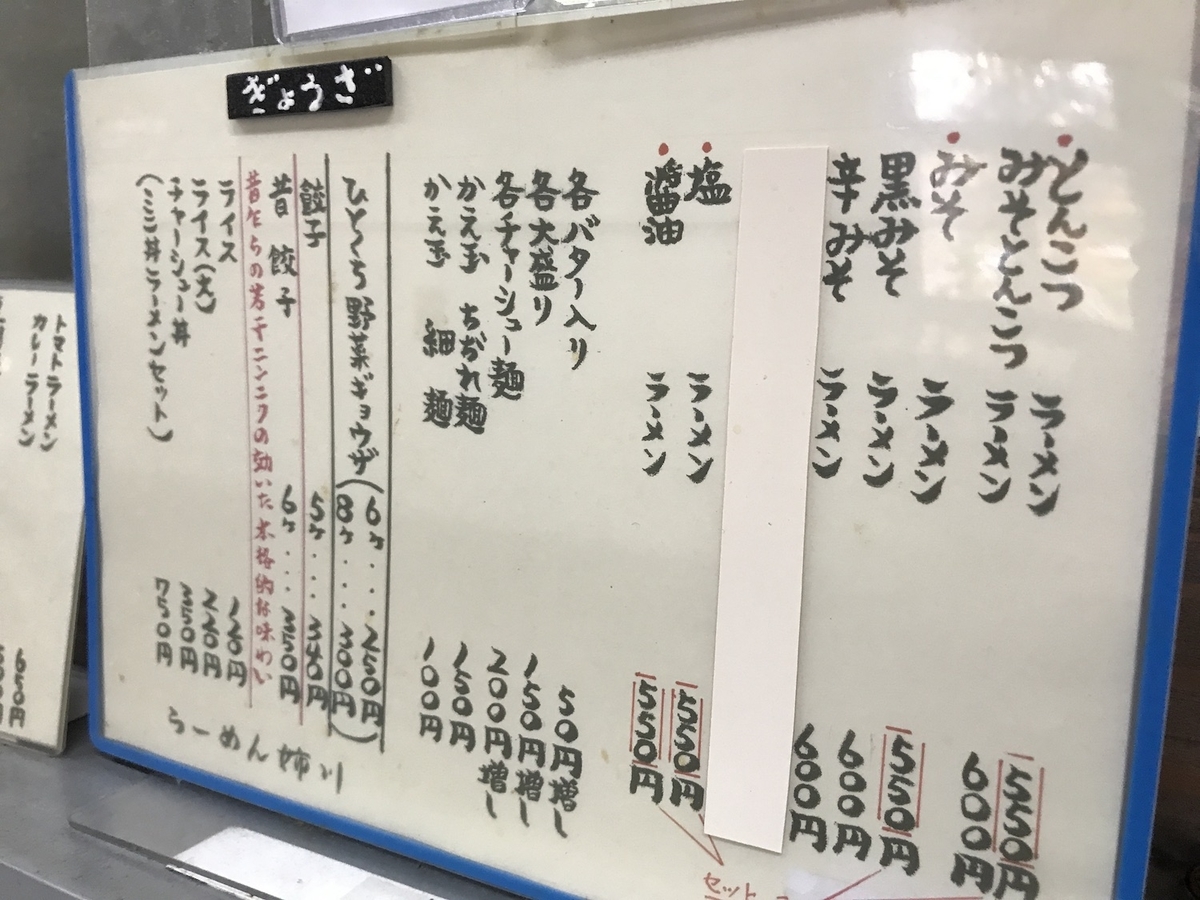 ぎょうざ
とんこつ ラーメン 550円
みそとんこつ ラーメン 600円
みそ ラーメン 550円
黒みそ ラーメン 600円
辛みそ ラーメン 600円
塩 ラーメン 550円
醤油 ラーメン 550円
セット
各バター入り 50円増し
各大盛り 150円増し
各チャーシュー麺 200円増し
かえ玉 ちぢれ麺 150円
かえ玉 細麺 100円
ひとくち野菜ギョウザ(6ヶ....250円
8ヶ....300円)
餃子 5ヶ....340円
昔 餃子 6ヶ....350円
昔乍らの芳チニンニクの効いた本格的な味わい
ライス 120円
ライス(大) 220円
チャーシュー丼 350円
(ミニ丼ラーメンセット) 750円
らーめん 姉川
トマトラーメン 650円
カレーラーメン